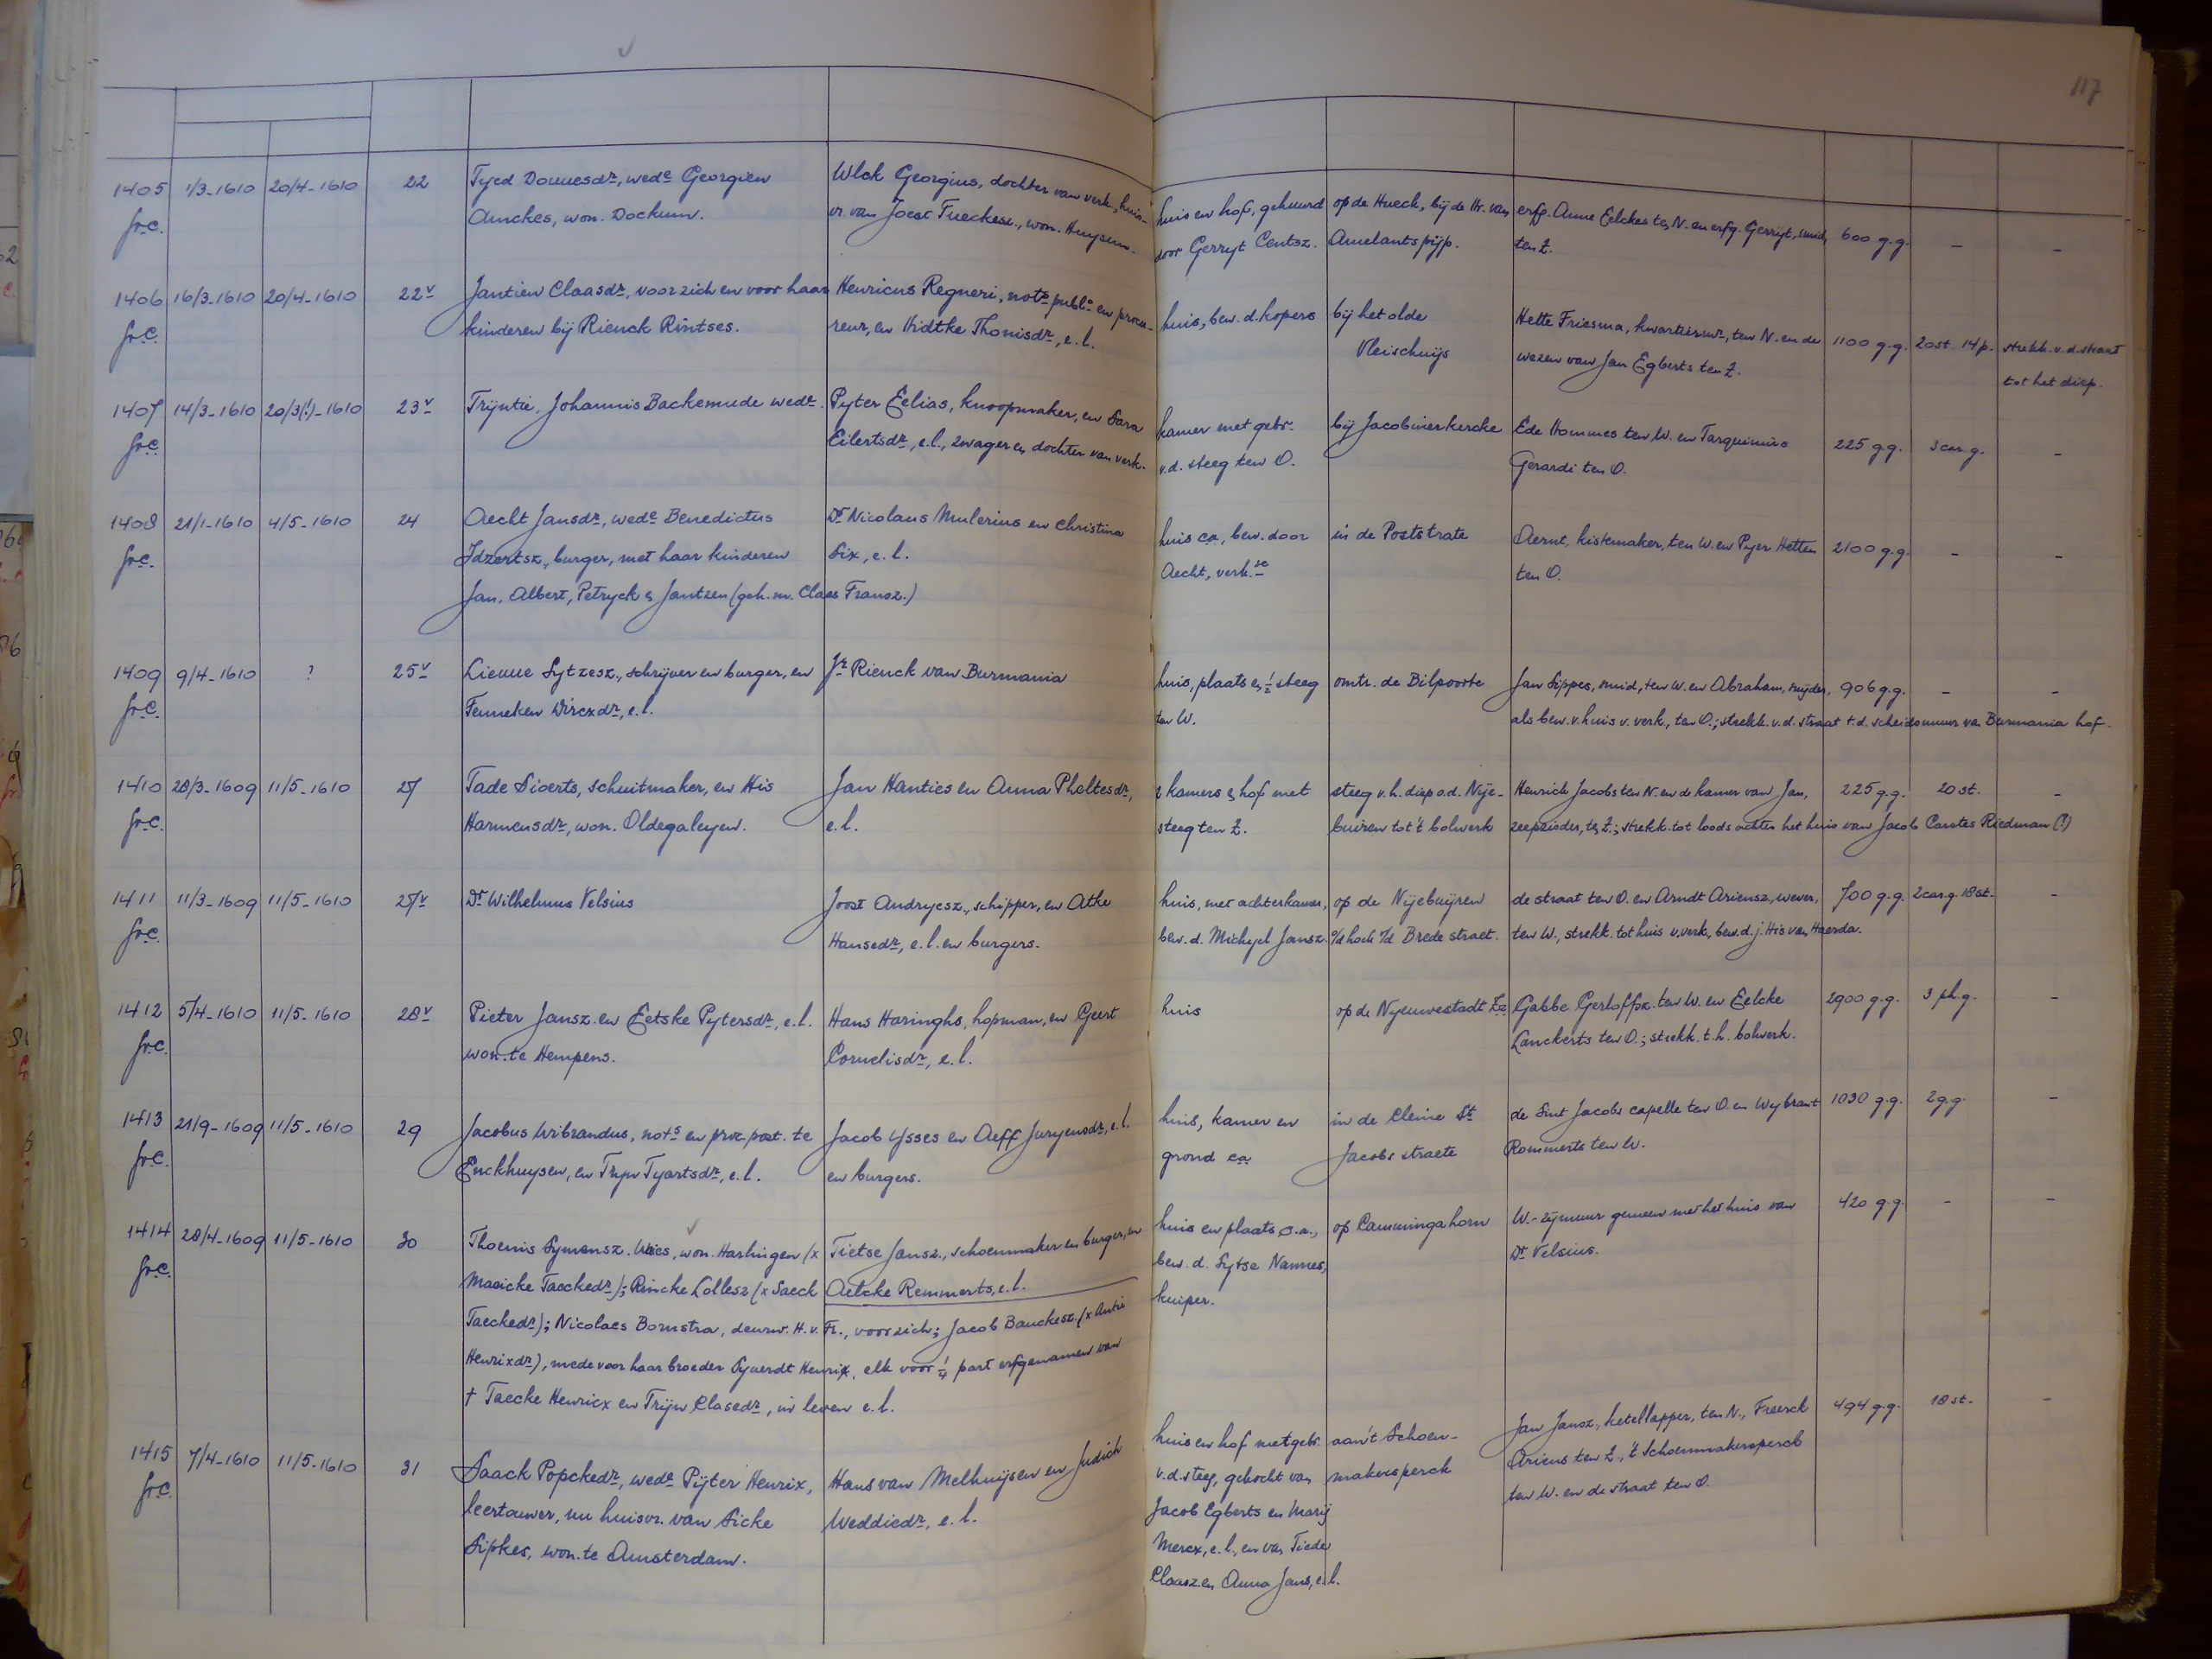 117
1405 1/3-1610 20/4-1610 22 Tyed Douuesdr, wede Georgien Wlck Georgius, dochter van verk., huis- huis en hof, gehuurd op de Hueck, bij de Hr. van erfg. Anne Eelckes ten N. en erfg. Gerryt, smid, 600 g.g. - -
fr.e. Amckes, won. Dockum. vr. van Joest Fueckesz., won. Huysum. door Gerryt Centsz. Amelants pijp. ten Z.
1406 16/3-1610 20/4-1610 22v Jantien Claasdr, voor zich en voor haar Henricus Regneri, nots publs en procu- huis, bew. d. kopers bij het olde Hette Friesma, kwartiermr, ten N. en de 1100 g.g. 20st. 14p. strekk. v.d. straat
fr.e. kinderen bij Rienck Rintses. reur, en Hidtke Thonisdr, e.l. Vleischuijs wezen van Jan Egberts ten Z. tot het diep.
1407 14/3-1610 20/3(!)-1610 23v Trijntie, Johannis Backemude wede. Pyter Eelias, knoopmaker, en Sara kamer met gebr. bij Jacobinerkercke Ede Hommes ten W. en Tarquinius 225 g.g. 3 car.g. -
fr.e. Eilertsdr, e.l., zwager en dochter van verk. v.d. steeg ten O. Gerardi ten O.
1408 21/1-1610 4/5-1610 24 Aecht Jansdr, wede Benedictus Dr Nicolaus Mulerius en Christina huis ca, bew. door in de Poststrate Aernt, kistemaker, ten W. en Pyer Hetten 2100 g.g. - -
fr.e. Idzertsz., burger, met haar kinderen Six, e.l. Aecht, verk.se ten O.
Jan, Albert, Petryck en Jantzen (geh. m. Claes Fransz.)
1409 9/4-1610 ? 25v Lieuue Sytzesz., schrijver en burger, en Jr Rienck van Burmania huis, plaats en ½ steeg omtr. de Bilpoorte Jan Sippes, smid, ten W. en Abraham, snijder, 906 g.g. - -
fr.e. Fenneken Wircxdr, e.l. ten W. als bew. v. huis v. verk., ten O.; strekk. v.d. straat t.d. scheidsmuur van Burmania hof.
1410 28/3-1609 11/5-1610 27 Tade Sioerts, schuitmaker, en His Jan Hanties en Anna Pholtesdr, 2 kamers en hof met steeg v.h. diep o.d. Nije- Henrick Jacobs ten N. en de kamer van Jan, 225 g.g. 20 st. -
fr.e. Harmensdr, won. Oldegaleyen. e.l. steeg ten Z. buiren tot 't bolwerk zeepzieder, ten Z.; strekk. tot loods achter het huis van Jacob Carstes Riedman (?)
1411 11/3-1609 11/5-1610 27v Dr Wilhelmus Velsius Joost Andryesz., schipper, en Athe huis, met achterkamer, op de Nijebuijren de straat ten O. en Arndt Ariensz., wever, 700 g.g. 2 car.g. 18 st. -
fr.e. Hansedr, e.l. en burgers. bew. d. Michyel Jansz. o/d hoek v/d Brede straet. ten W., strekk. tot huis v. verk., bew. d. j. His van Haerda.
1412 5/4-1610 11/5-1610 28v Pieter Jansz. en Eetske Pytersdr, e.l. Hans Haringhs, hopman, en Geert huis op de Nyeuwestadt Zz Gabbe Gerloffsz. ten W. en Eelcke 2900 g.g. 3 ph.g. -
fr.e. won. te Hempens. Cornelisdr, e.l. Lanckerts ten O.; strekk. t.h. bolwerk.
1413 21/9-1609 11/5-1610 29 Jacobus Wibrandus, nots en proc. post. te Jacob Ysses en Aeff Juryensdr, e.l. huis, kamer en in de Cleine St de Sint Jacobs capelle ten O. en Wybrant 1030 g.g. 2 g.g. -
fr.e. Enckhuysen, en Tryn Tyartsdr, e.l. en burgers. grond ca Jacobs straete Rommerts ten W.
1414 28/4-1609 11/5-1610 30 Thoenis Symensz. Wies, won. Harlingen (x Tietse Jansz., schoenmaker en burger, en huis en plaats c.a., op Camminga horn W.-zijmuur gemeen met het huis van 420 g.g. - -
fr.e. Maaicke Taeckedr); Rincke Lollesz (x Saeck Aelcke Remmerts, e.l. bew. d. Sytse Nannes, Dr Velsius.
Taeckedr); Nicolaes Bomstra, deurw. H.v. Fr., voor zich; Jacob Bauckesz. (x Antie kuiper.
Henrixdr), mede voor haar broeder Syuerdt Henrix, elk voor ¼ part erfgenamen van
† Taecke Henricx en Trijn Clasedr, in leven e.l.
1415 7/4-1610 11/5-1610 31 Saack Popckedr, wede Pijter Henrix, Hans van Melhuijsen en Judich huis en hof met gebr. aan 't Schoen- Jan Jansz., ketellapper, ten N., Freerck 494 g.g. 18 st. -
fr.e. leertouwer, nu huisvr. van Sicke Weddiedr, e.l. v.d. steeg, gekocht van makersperck Ariens ten Z., 't Schoenmakersperck
Sipkes, won. te Amsterdam. Jacob Egberts en Marij ten W. en de straat ten O.
Mercx, e.l., en van Tiede
Claasz. en Anna Jans, e.l.